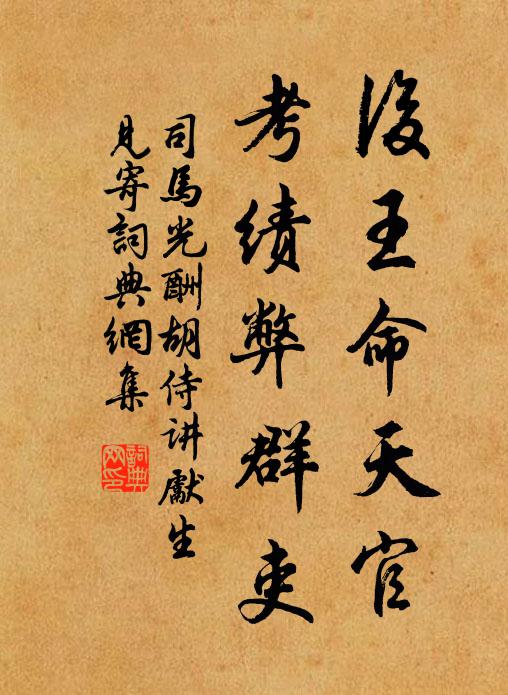 後王命天官
考績弊群吏
司馬光酬胡侍讲獻生
見寄詞典網集
詞典
网印